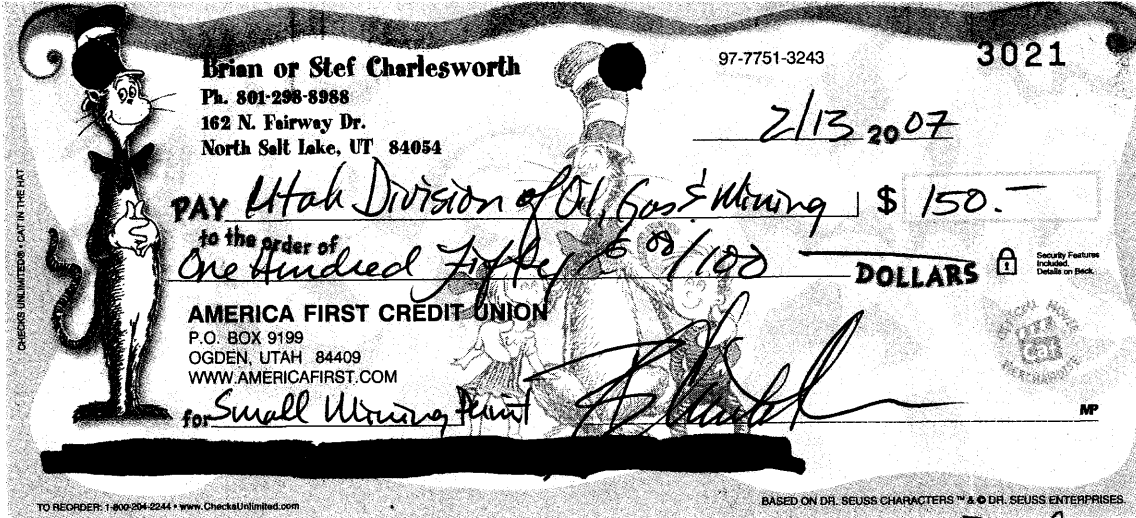 Brian or Stef Charlesworth
Ph. 801-298-8988
162 N. Fairway Dr.
North Salt Lake, UT 84054
97-7751-3243
3021
2/13 2007
PAY Utah Division of Oil, Gas & Mining $ 150.—
to the order of
One Hundred Fifty & 00/100 DOLLARS
Security Features
Included.
Details on Back.
AMERICA FIRST CREDIT UNION
P.O. BOX 9199
OGDEN, UTAH 84409
WWW.AMERICAFIRST.COM
for Small Mining Permit
MP
CHECKS UNLIMITED® • CAT IN THE HAT
Cat
MERCHANDISE
TO REORDER: 1-800-204-2244 • www.ChecksUnlimited.com
BASED ON DR. SEUSS CHARACTERS ™ & © DR. SEUSS ENTERPRISES.